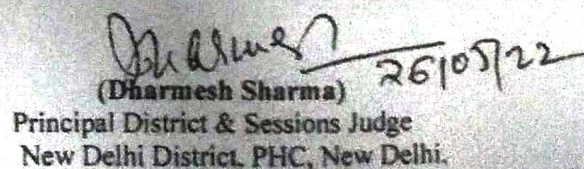 Dharmesh 26/05/22
(Dharmesh Sharma)
Principal District & Sessions Judge
New Delhi District, PHC, New Delhi.